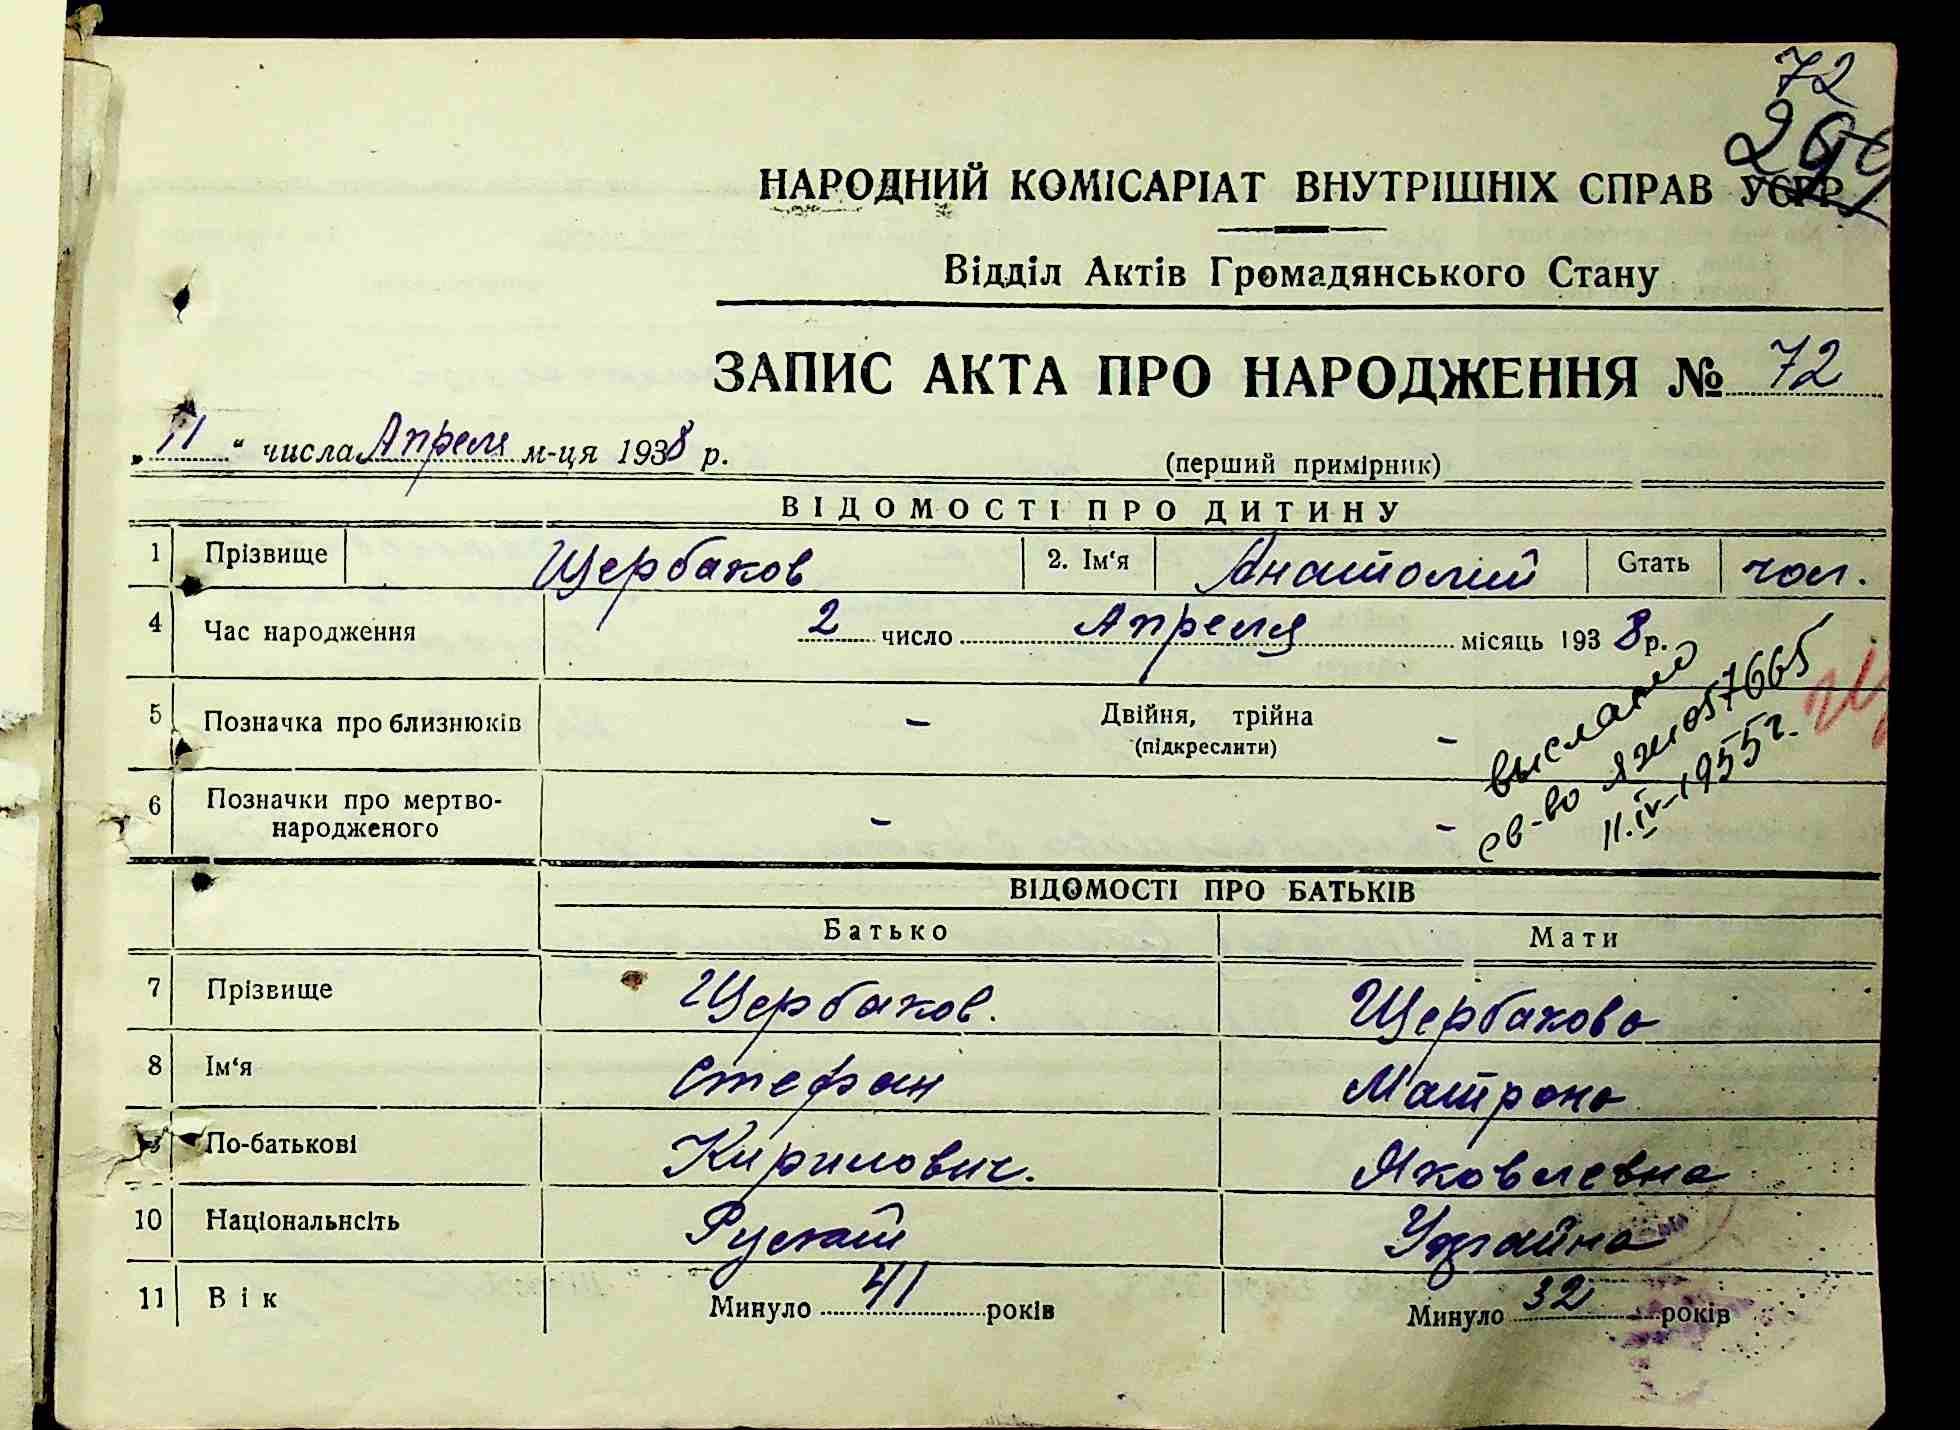 72
НАРОДНИЙ КОМІСАРІАТ ВНУТРІШНІХ СПРАВ УСРР
Відділ Актів Громадянського Стану
ЗАПИС АКТА ПРО НАРОДЖЕННЯ № 72
„11“ числа Апреля м-ця 1938 р.
(перший примірник)
ВІДОМОСТІ ПРО ДИТИНУ
1 Прізвище Щербаков 2. Ім‘я Анатолій Стать чол.
4 Час народження 2 число Апреля місяць 1938 р.
5 Позначка про близнюків – Двійня, трійна –
(підкреслити)
6 Позначки про мертво-
народженого – –
выслано
св-во 057665
11.IV-1955г.
ВІДОМОСТІ ПРО БАТЬКІВ
Батько Мати
7 Прізвище Щербаков. Щербакова
8 Ім‘я Стефан Матрона
9 По-батькові Кирилович. Яковлевна
10 Національнсіть Руский
11 Вік Минуло 41 років Минуло 32 років